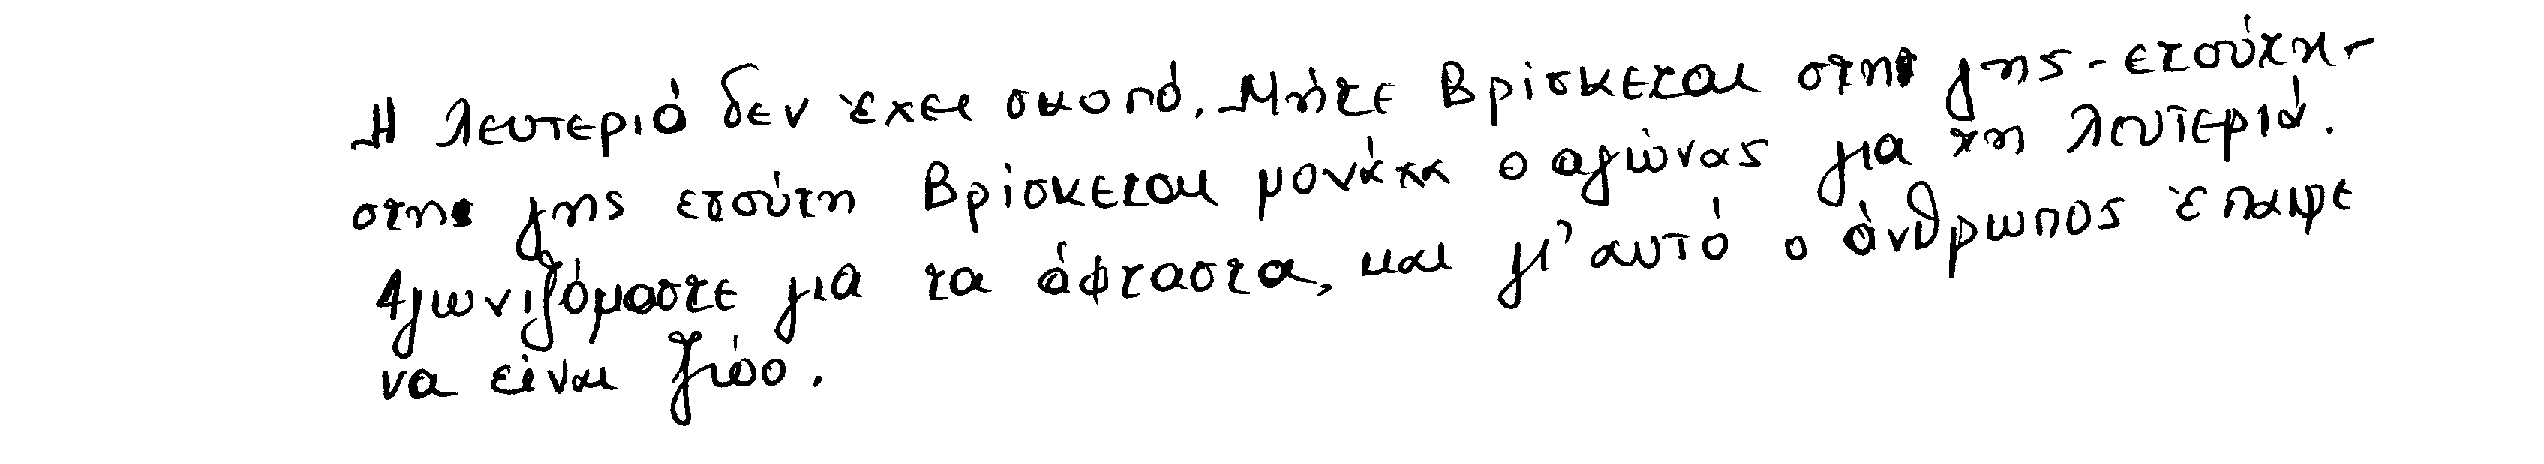 Η λευτεριά δεν έχει σκοπό. Μήτε βρίσκεται στη γης - ετούτη -
στη γης ετούτη βρίσκεται μονάχα ο αγώνας για τη λευτεριά.
Αγωνιζόμαστε για τα άφταστα, και γι' αυτό ο άνθρωπος έπαψε
να είναι ζώο.